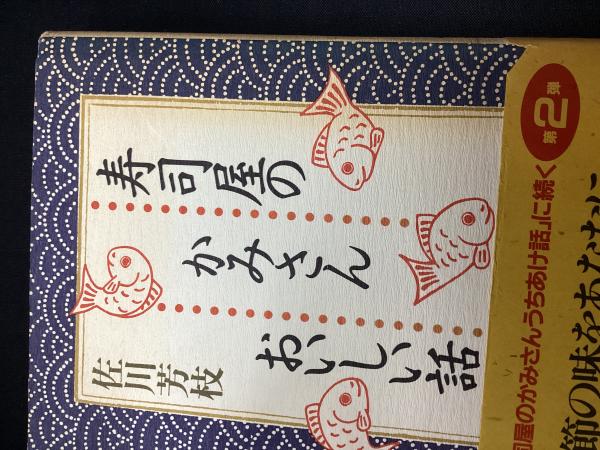 寿司屋の
かみさん
おいしい話
佐川芳枝
第2弾
司屋のかみさんうちあけ話」に続く
節の味をあなたに